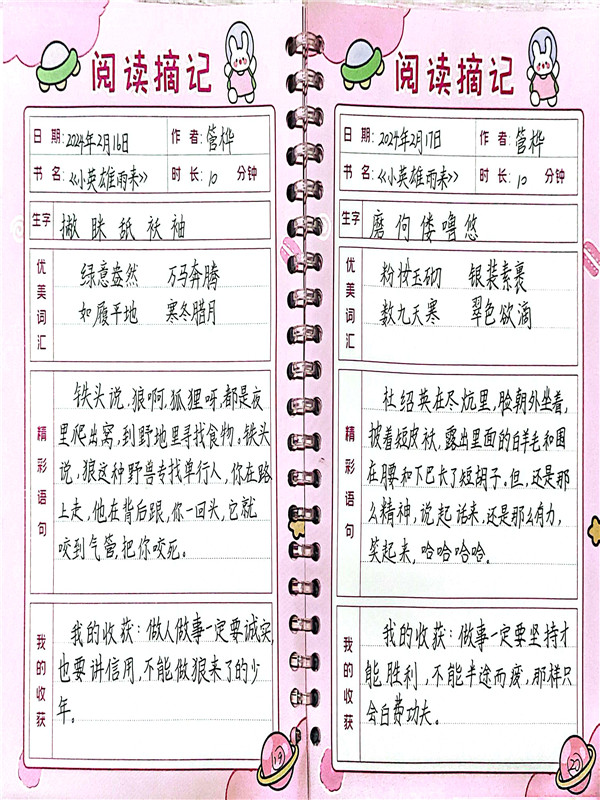 阅读摘记
日期:2024年2月16日 作者:管桦
书名:《小英雄雨来》 时长:10 分钟
生字 撇 眯 舐 袄 袖
优美词汇
绿意盎然 万马奔腾
如履平地 寒冬腊月
精彩语句
铁头说,狼啊,狐狸呀,都是夜
里爬出窝,到野地里寻找食物。铁头
说,狼这种野兽专找单行人,你在路
上走,他在背后跟,你一回头,它就
咬到气管,把你咬死。
我的收获
我的收获:做人做事一定要诚实,
也要讲信用,不能做狼来了的少
年。
19
阅读摘记
日期:2024年2月17日 作者:管桦
书名:《小英雄雨来》 时长:10 分钟
生字 磨 佝 偻 噜 悠
优美词汇
粉妆玉砌 银装素裹
数九天寒 翠色欲滴
精彩语句
杜绍英在尽炕里,脸朝外坐着,
披着短皮袄,露出里面的白羊毛和围
在腰和下巴长了短胡子。但,还是那
么精神,说起话来,还是那么有力,
笑起来,哈哈哈哈。
我的收获
我的收获:做事一定要坚持才
能胜利,不能半途而废,那样只
会白费功夫。
20